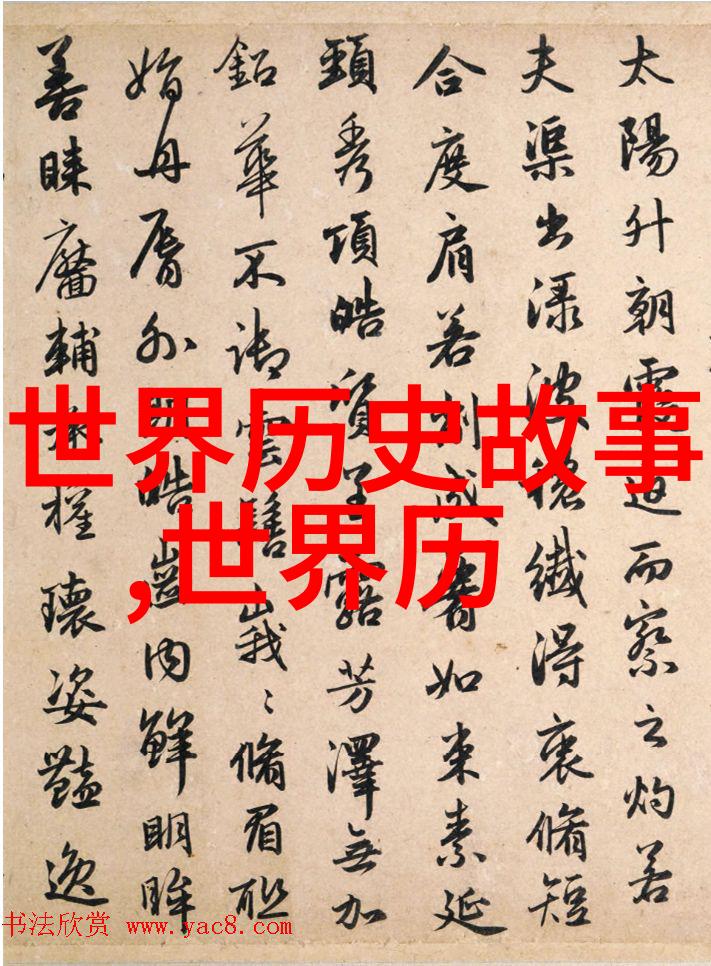 太陽升朝霞迫而察之灼若
夫渠出淥波穠纖得衷脩短
合度肩若削成如束素延
頸秀項皓質呈露芳澤無加
鉛華不御雲髻峩〻脩眉聯
娟丹脣外朗皓齒内鮮明眸
善睞靨輔承權瓌姿豔逸
世界历史故事
,世界历
书法欣赏 www.yac8.com